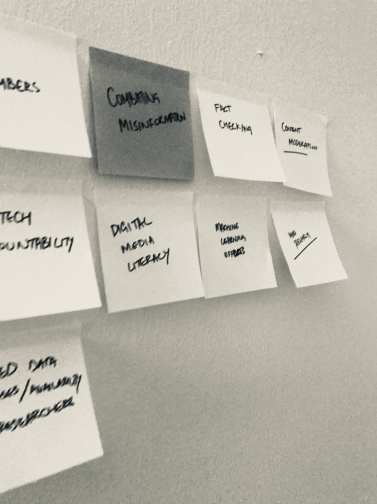 MBERS
COMBATING
MISINFORMATION
FACT
CHECKING
CONTENT
MODERATION
TECH
OUNTABILITY
DIGITAL
MEDIA
LITERACY
MACHINE
LEARNING
EFFORTS
ED DATA
/AVAILABILITY
RESEARCHERS